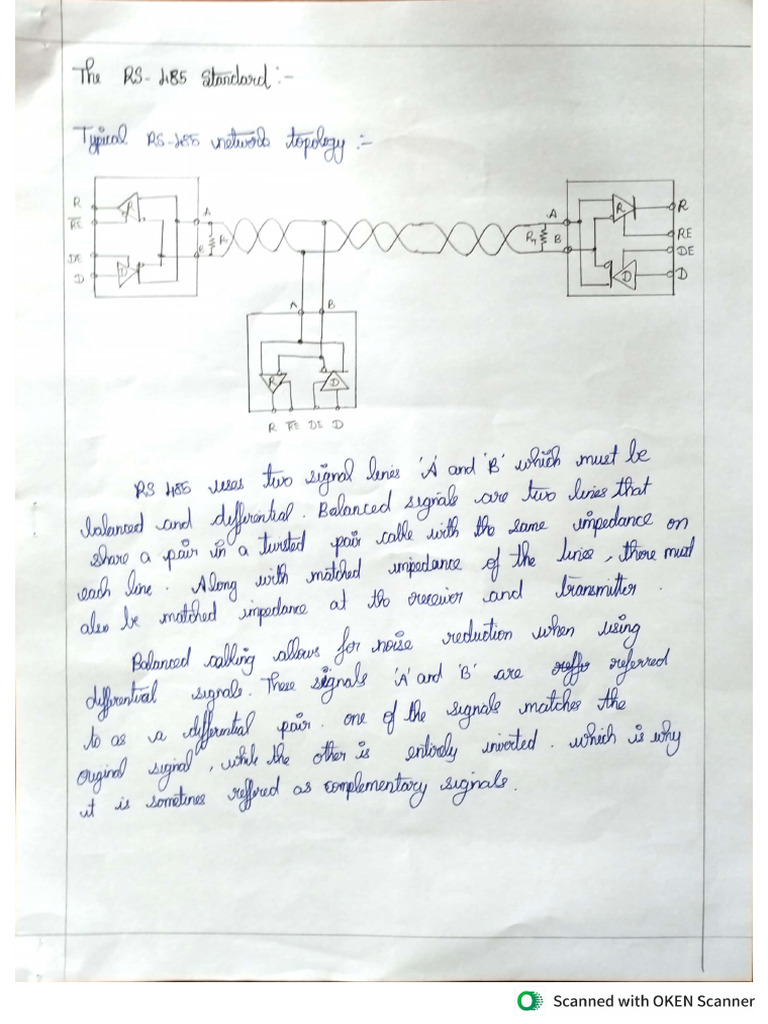 The RS-485 Standard :-
Typical RS-485 network topology :-
R
R̅E̅
DE
D
R
D
A
B
RT
A
B
RT
R
D
R
RE
DE
D
A
B
R
D
R R̅E̅ DE D
RS 485 uses two signal lines 'A' and 'B' which must be
balanced and differential. Balanced signals are two lines that
share a pair in a twisted pair cable with the same impedance on
each line. Along with matched impedance of the lines, there must
also be matched impedance at the receiver and transmitter.
Balanced calling allows for noise reduction when using
differential signals. These signals 'A' and 'B' are referred
to as a differential pair. one of the signals matches the
original signal, while the other is entirely inverted. which is why
it is sometines reffered as complementary signals.
Scanned with OKEN Scanner